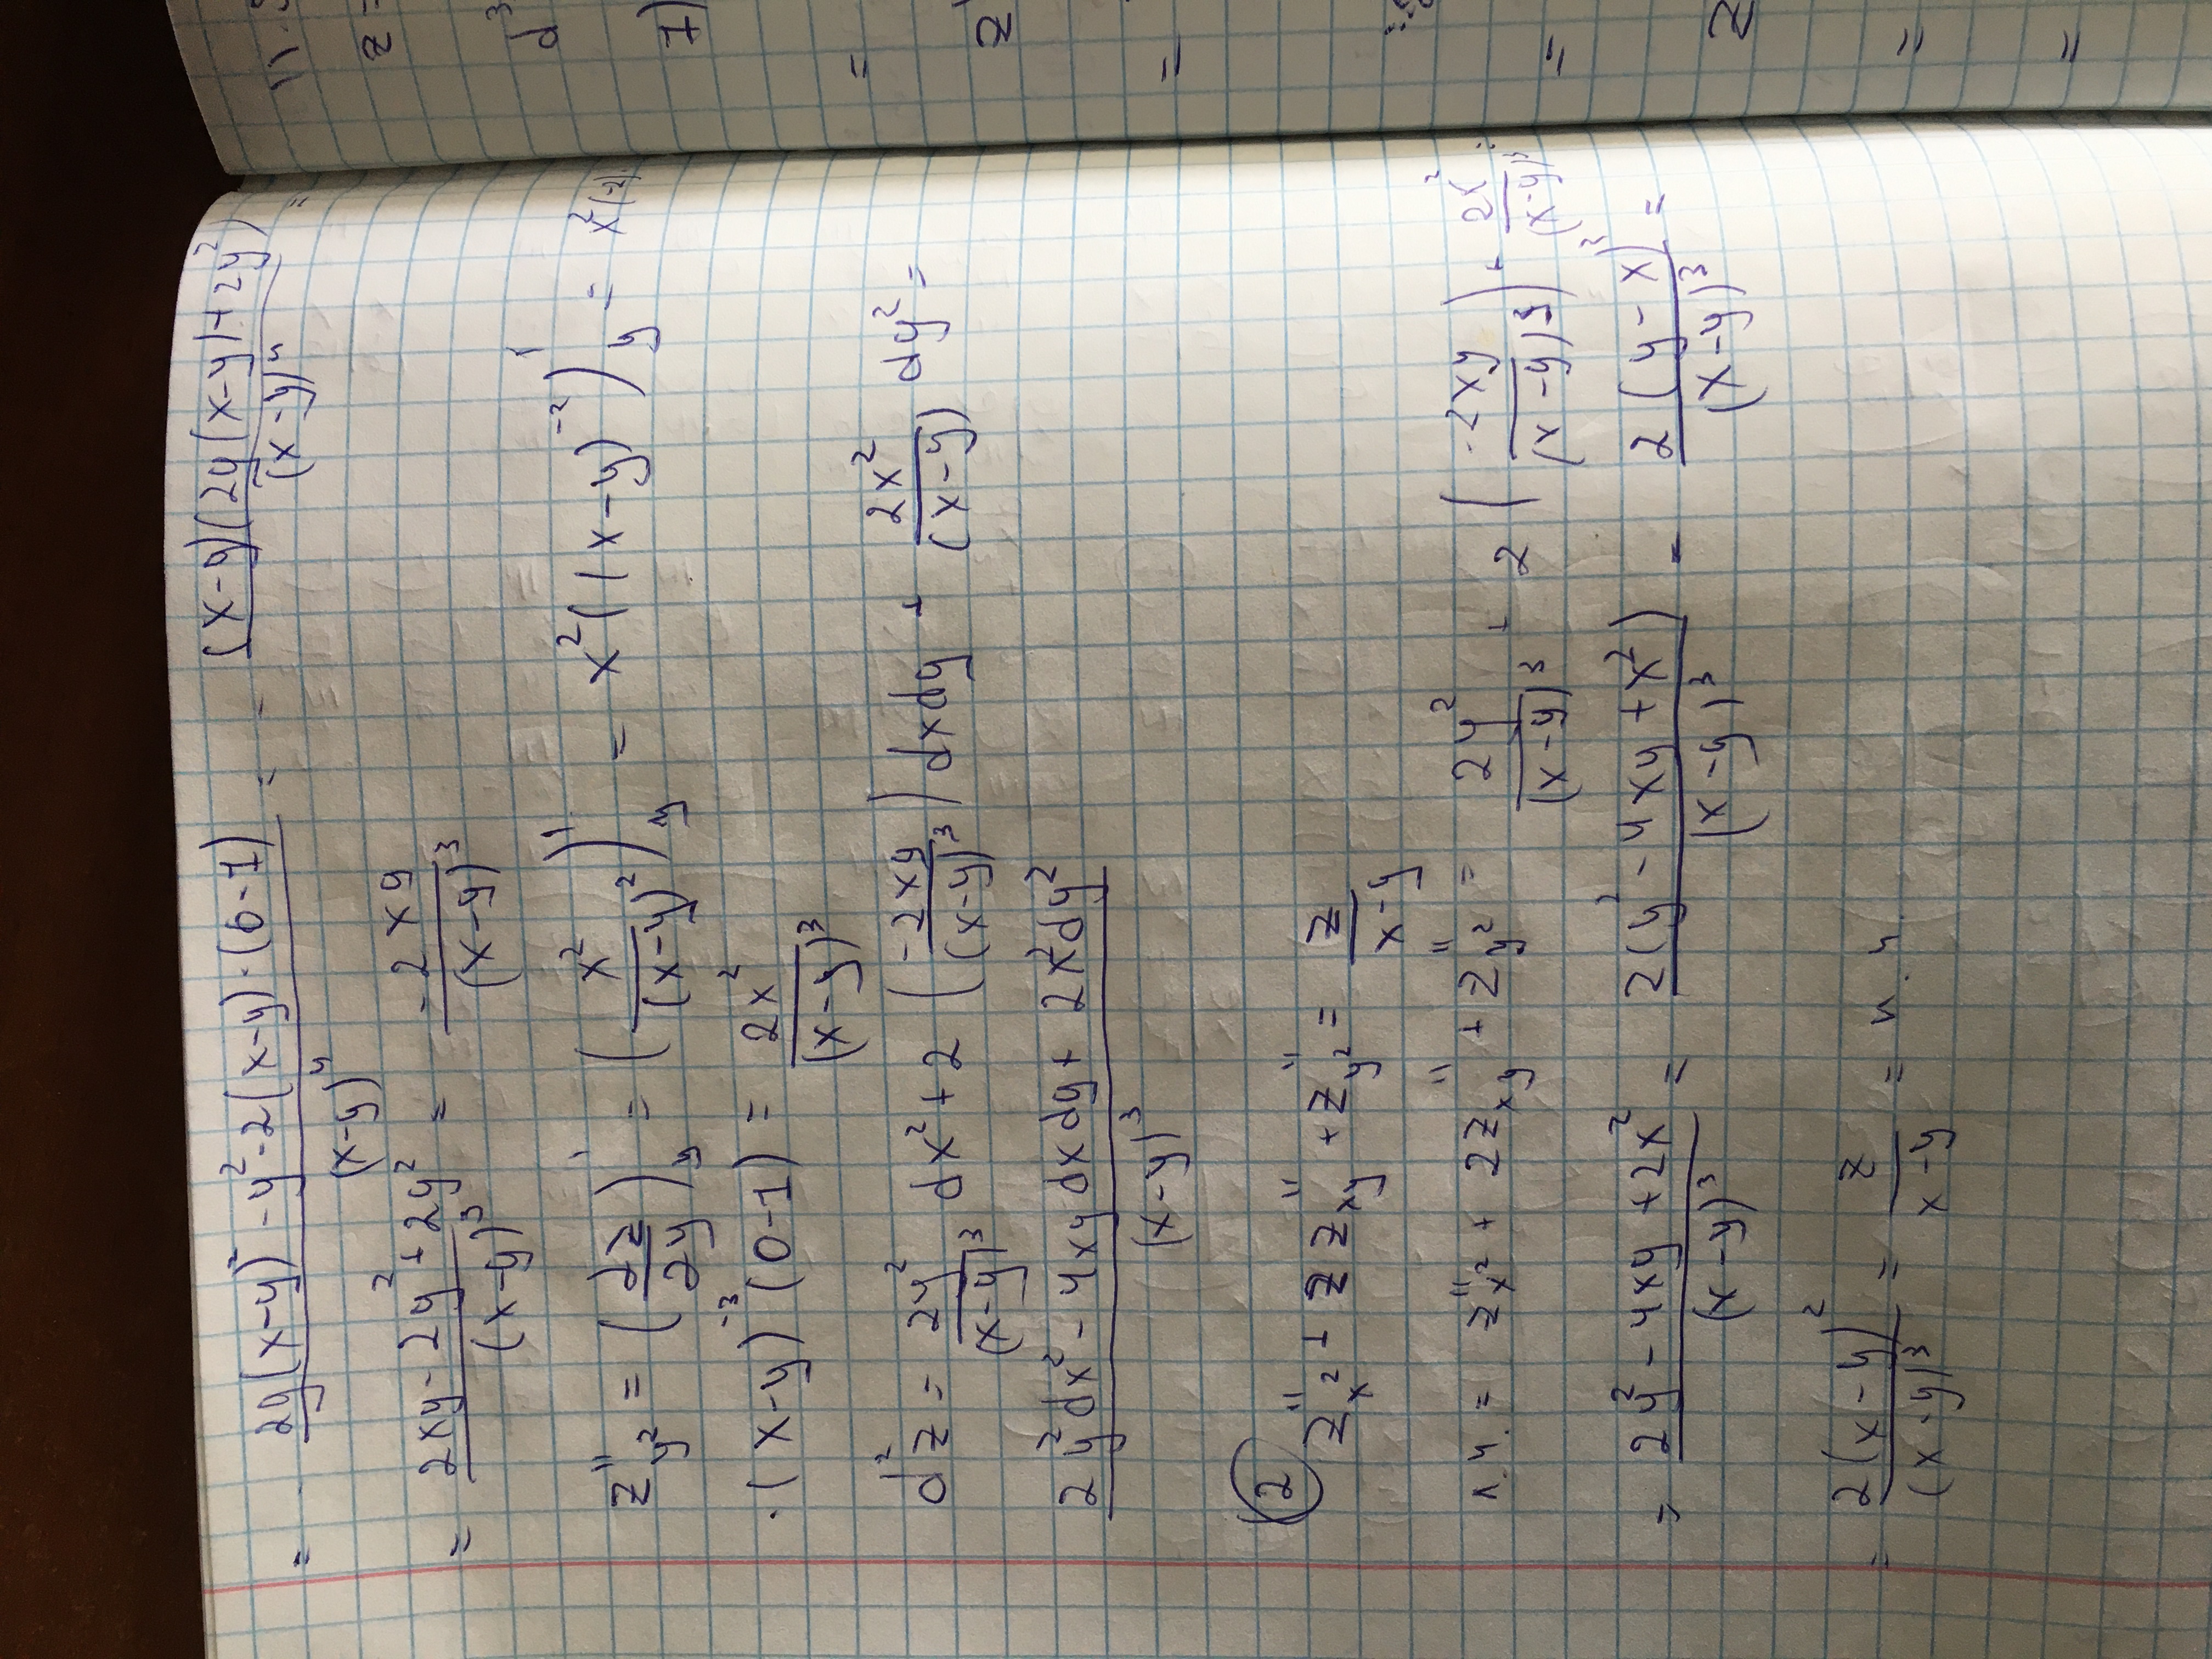 = - (2y(x-y)² - y²·2(x-y)·(0-1))/(x-y)⁴ = - ((x-y)(2y(x-y)+2y²))/(x-y)⁴ =
= (2xy - 2y² + 2y²)/(x-y)³ = (-2xy)/(x-y)³
z''_y² = (∂z/∂y)'_y = (x²/(x-y)²)'_y = x²((x-y)⁻²)'_y = x²(-2)·
·(x-y)⁻³(0-1) = 2x²/(x-y)³
d²z = 2y²/(x-y)³ dx² + 2(-2xy/(x-y)³)dxdy + 2x²/(x-y) dy² =
(2y²dx² - 4xydxdy + 2x²dy²)/(x-y)³
2
z''_x² + 2z''_xy + z''_y² = 2/(x-y)
л.ч. = z''_x² + 2z''_xy + z''_y² = 2y²/(x-y)³ + 2(-2xy/(x-y)³) + 2x²/(x-y)³ =
= (2y² - 4xy + 2x²)/(x-y)³ = 2(y² - 4xy + x²)/(x-y)³ = 2(y-x)²/(x-y)³ =
= 2(x-y)²/(x-y)³ = 2/(x-y) = п.ч.
z =
d³
7)
=
z'
=
=
=
=